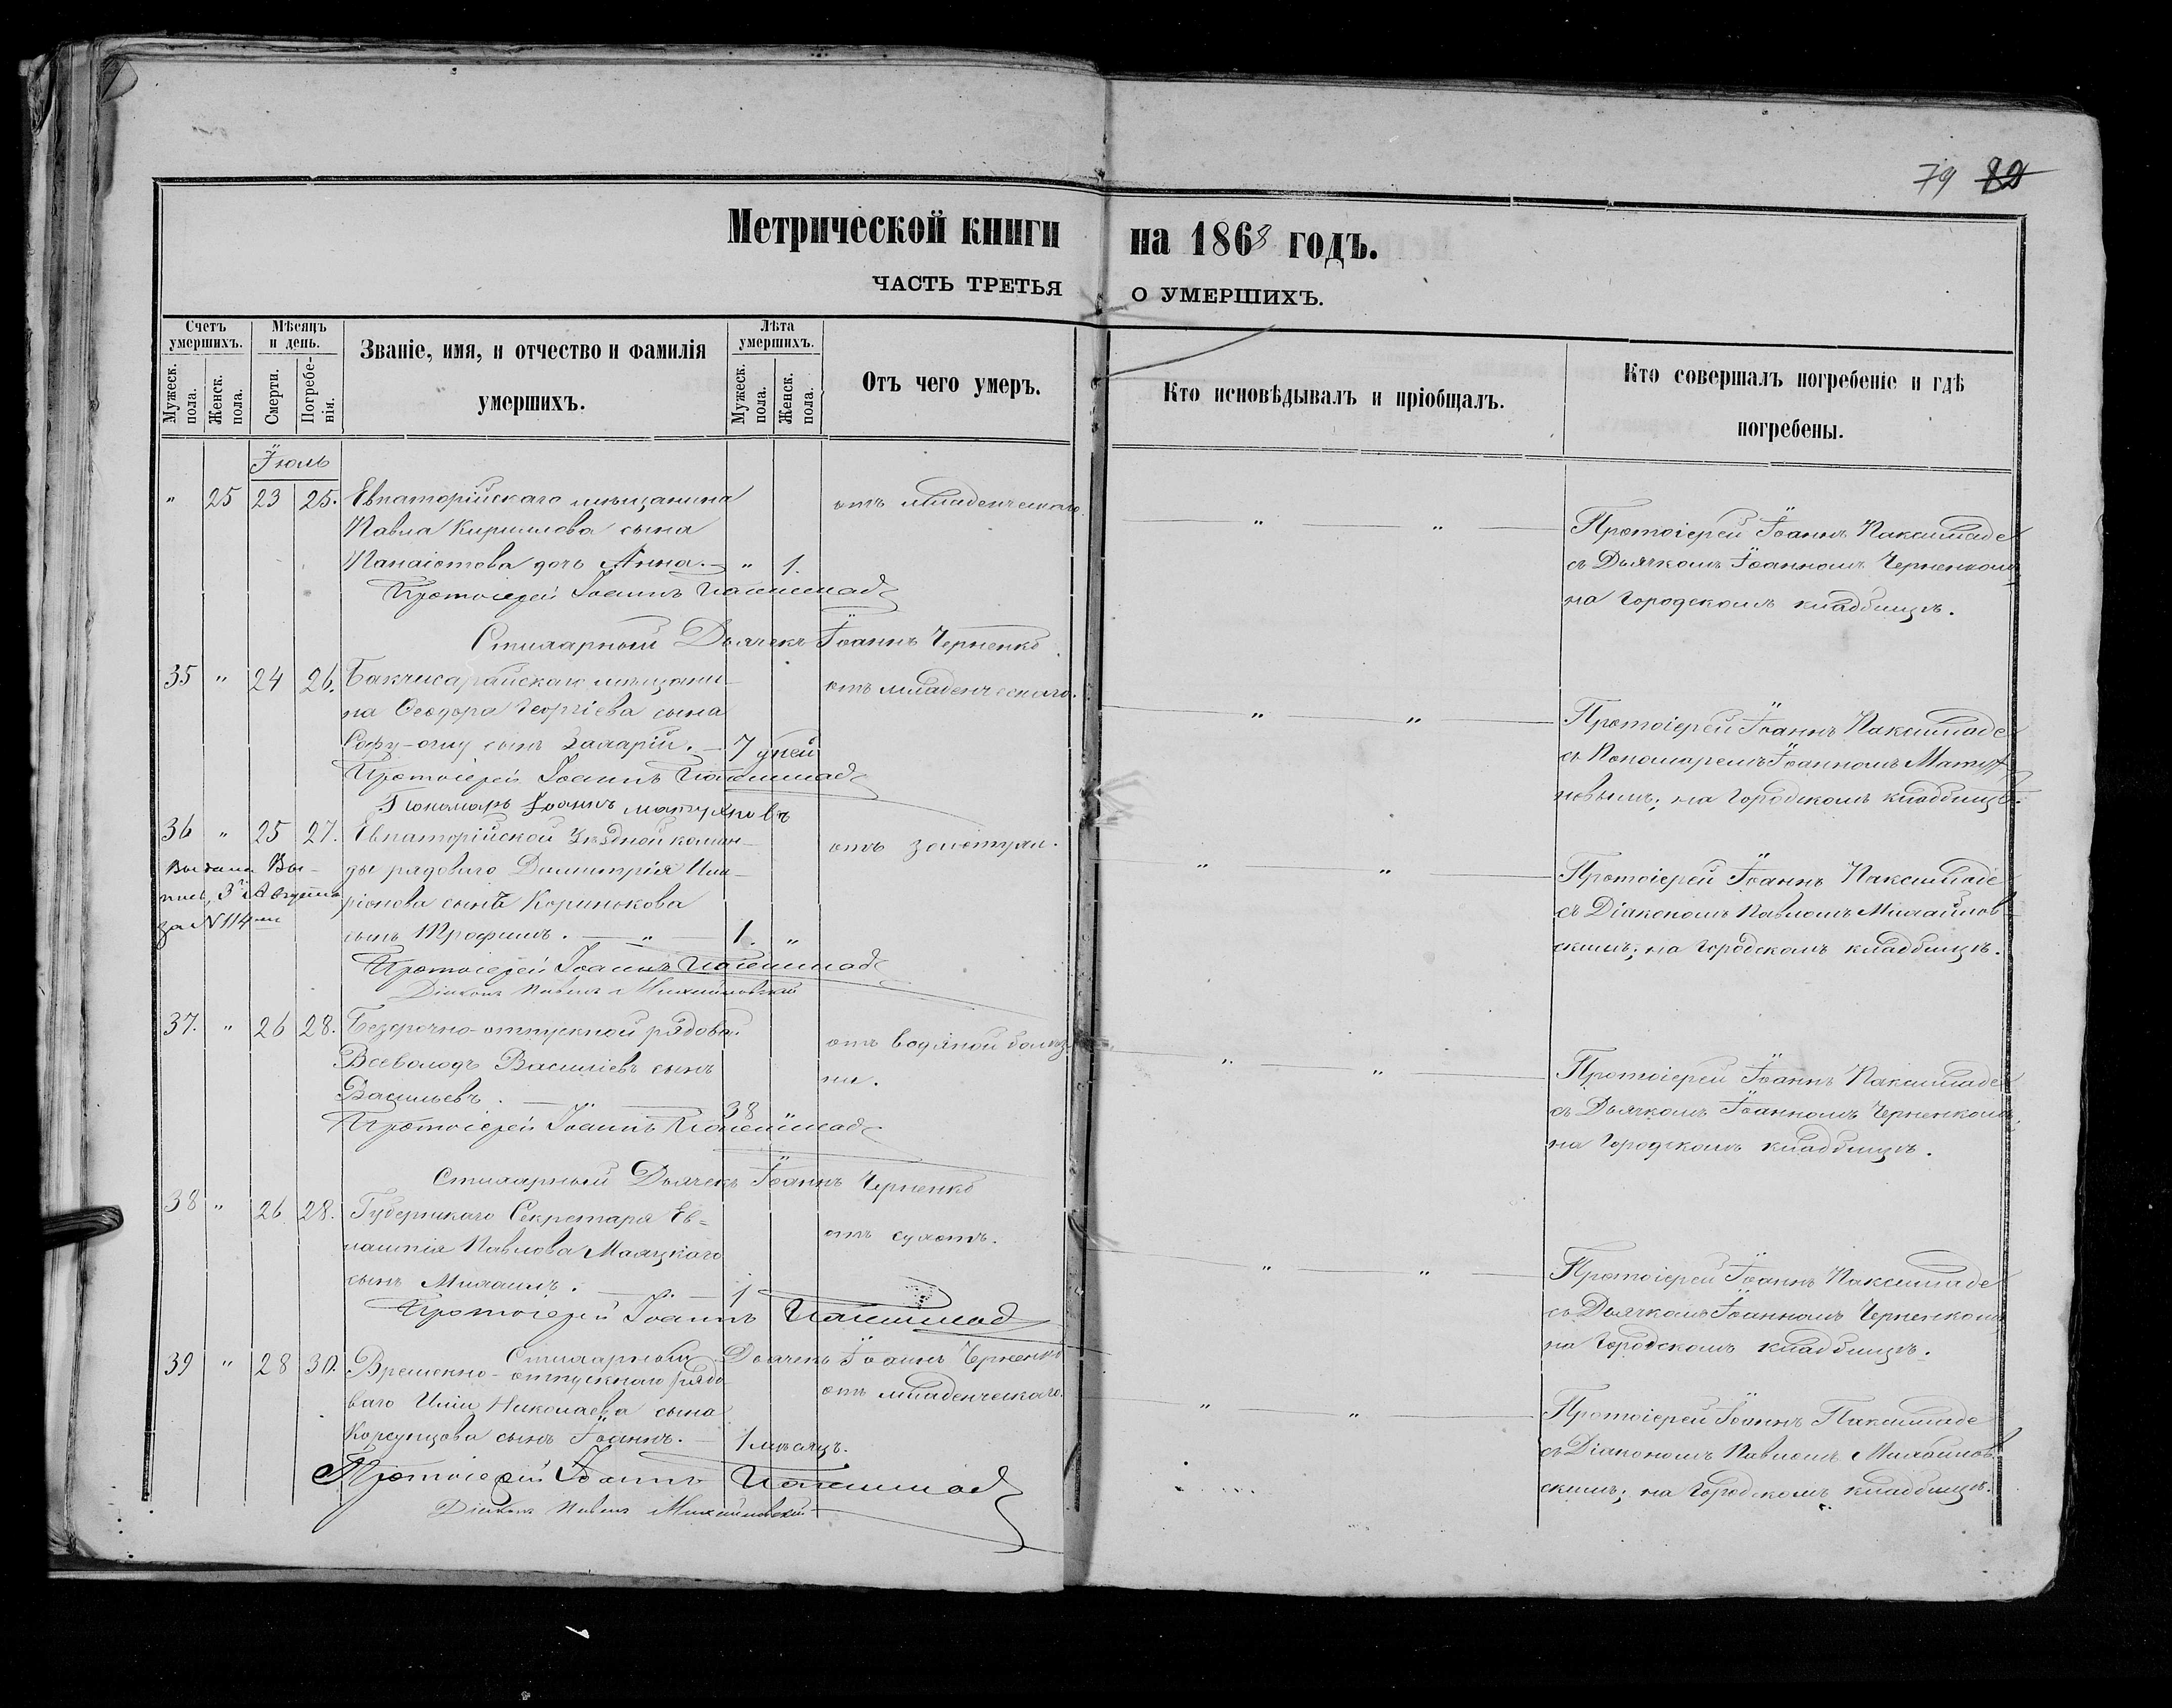 79 82
Метрической книги на 1868 годъ.
ЧАСТЬ ТРЕТЬЯ О УМЕРШИХЪ.
Счетъ умершихъ.
Мужеск. пола.
Женск. пола.
Мѣсяцъ и день.
Смерти.
Погребенія.
Званіе, имя, и отчество и фамилія
умершихъ.
Лѣта умершихъ.
Мужеск. пола.
Женск. пола.
Отъ чего умеръ.
Кто исповѣдывалъ и пріобщалъ.
Кто совершалъ погребеніе и гдѣ
погребены.
Іюль
" 25 23 25. Евпаторійскаго мѣщанина отъ младенческаго.
Павла Кирилова сына
Панаіотова дочь Анна. " 1.
Протоіерей Іоаннъ
Стихарный Дьячекъ Іоаннъ Черненко
" " Протоіерей Іоаннъ
съ Дьячкомъ Іоанномъ Черненкомъ
на Городскомъ кладбищѣ.
35 " 24 26. Бакчисарайскаго мѣщани- отъ младенческаго.
на Ѳеодора Георгіева сына
сынъ Захарій. 7 дней
Протоіерей Іоаннъ
Пономарь Іоаннъ
" " Протоіерей Іоаннъ
съ Пономаремъ Іоанномъ
новымъ; на Городскомъ кладбищѣ.
36 " 25 27. Евпаторійской Уѣздной коман- отъ золотухи.
ды рядоваго Димитрія Ила-
ріонова сына Коринькова
сынъ Трофимъ. " 1. "
Выдана Вы-
пись 3го Августа
за № 114
Протоіерей Іоаннъ
Діаконъ Павелъ Михайловскій
" " Протоіерей Іоаннъ
съ Діакономъ Павломъ Михайлов-
скимъ; на Городскомъ кладбищѣ.
37. " 26 28. Безсрочно-отпускной рядовой отъ водяной болѣз-
Всеволодъ Василіевъ сынъ ни.
Васильевъ. 38 "
Протоіерей Іоаннъ
Стихарный Дьячекъ Іоаннъ Черненко
" " Протоіерей Іоаннъ
съ Дьячкомъ Іоанномъ Черненкомъ,
на Городскомъ кладбищѣ.
38 " 26 28. Губернскаго Секретаря Ев- отъ сухотъ.
Павлова Маяцкаго
сынъ Михаилъ. " 1
Протоіерей Іоаннъ
Стихарный Дьячекъ Іоаннъ Черненко
" " Протоіерей Іоаннъ
съ Дьячкомъ Іоанномъ Черненкомъ
на Городскомъ кладбищѣ.
39 " 28 30. Временно-отпускнаго рядо- отъ младенческаго.
ваго Иліи Николаева сына
Корсунцова сынъ Іоаннъ. 1 мѣсяцъ.
Протоіерей Іоаннъ
Діаконъ Павелъ Михайловскій
" " Протоіерей Іоаннъ
съ Діакономъ Павломъ Михайлов-
скимъ; на Городскомъ кладбищѣ.